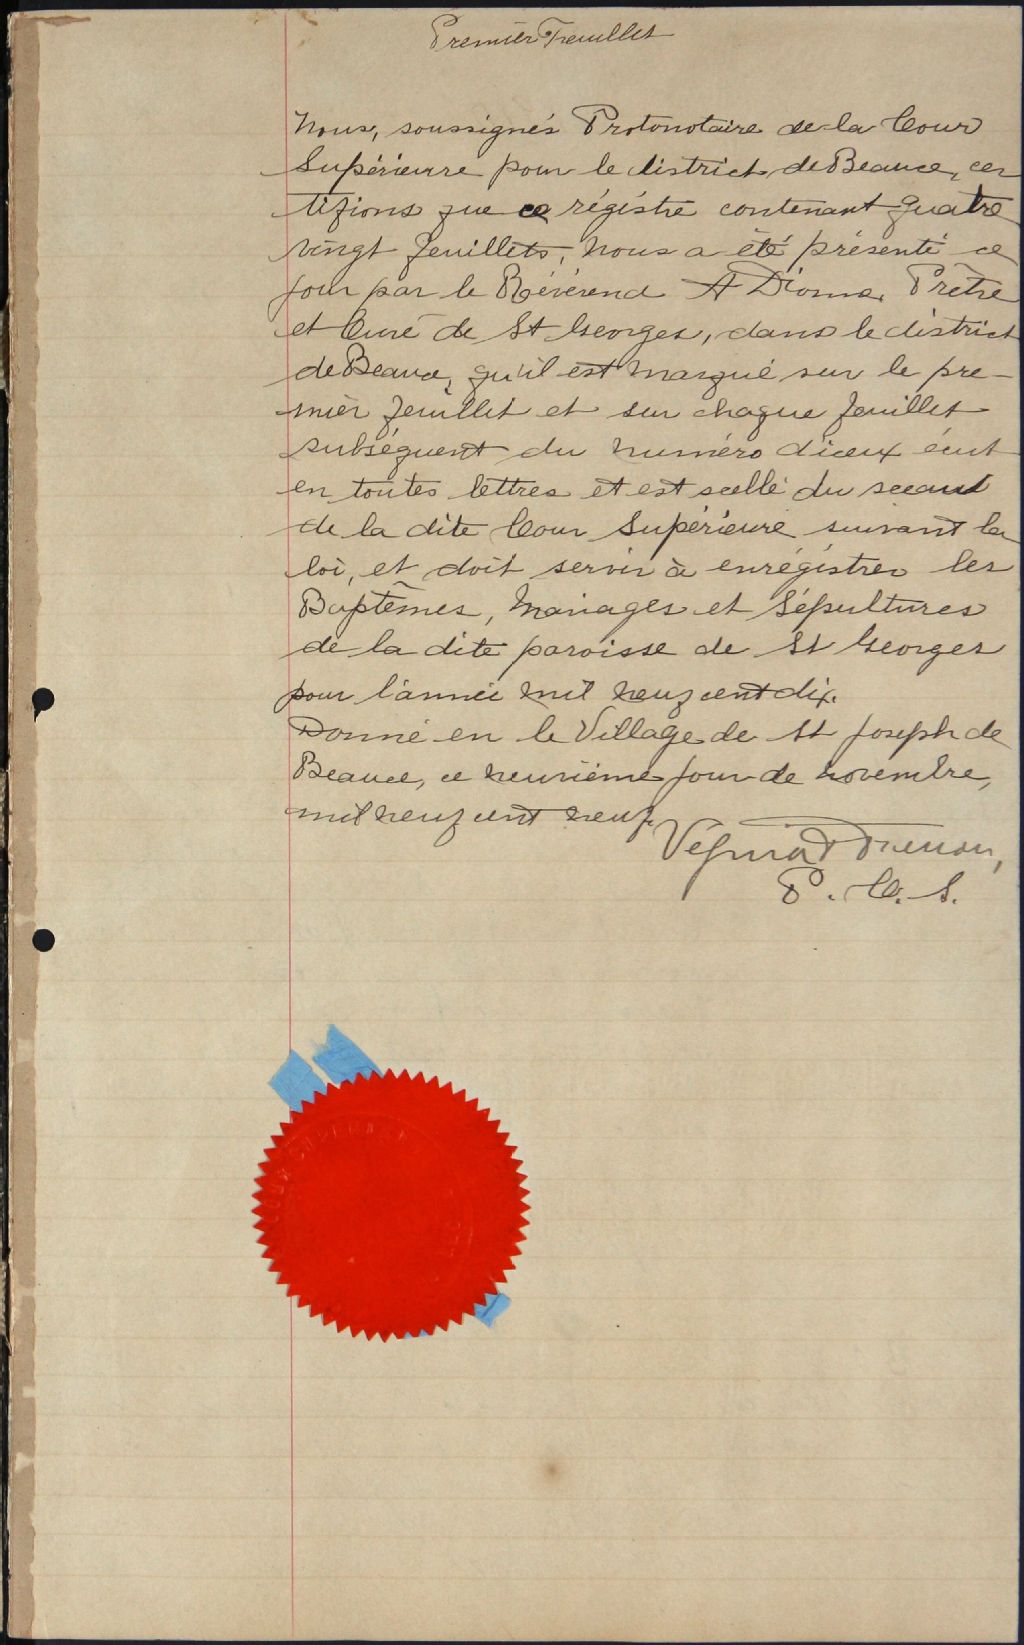 Premier Feuillet
Nous, soussignés Protonotaire de la Cour
Supérieure pour le district de Beauce, cer
tifions que ce régistre contenant quatre
vingt feuillets, nous a été présenté ce
jour par le Révérend A Dionne, Prêtre
et Curé de St Georges, dans le district
de Beauce, qu'il est marqué sur le pre-
mier feuillet et sur chaque feuillet
subséquent du numéro d'iceux écrit
en toutes lettres et est scellé du sceau
de la dite Cour Supérieure suivant la
loi, et doit servir à enrégistrer les
Baptêmes, Mariages et Sépultures
de la dite paroisse de St Georges
pour l'année mil neuf cent dix.
Donné en le Village de St Joseph de
Beauce, ce neuvième jour de novembre,
mil neuf cent neuf.
P. C. S.